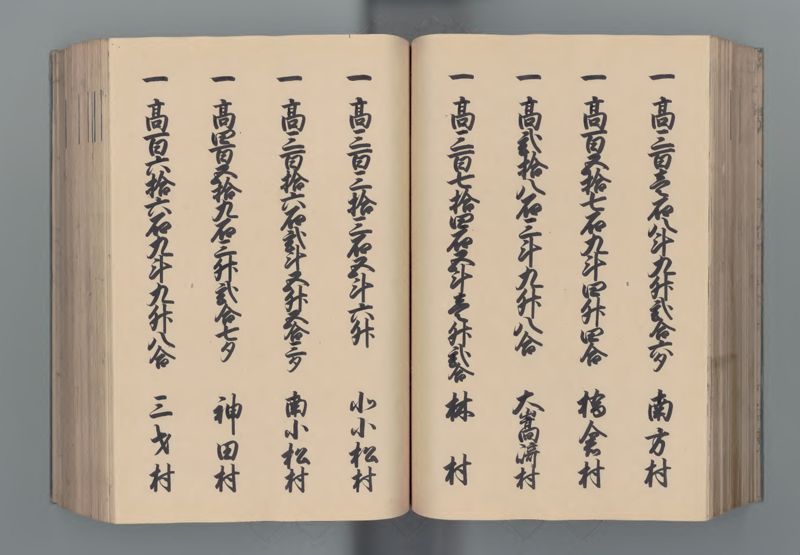 一 高三百壱石八斗九升弐合六夕 南方村
一 高百五拾七石九斗四升四合 橋倉村
一 高弐拾八石三斗九升八合 大嵩崎村
一 高三百七拾四石五斗壱升弐合 林村
一 高三百三拾三石五斗六升 北小松村
一 高三百拾六石弐斗五升五合三夕 南小松村
一 高四百五拾九石三升弐合七夕 神田村
一 高百六拾六石九斗九升八合 三才村